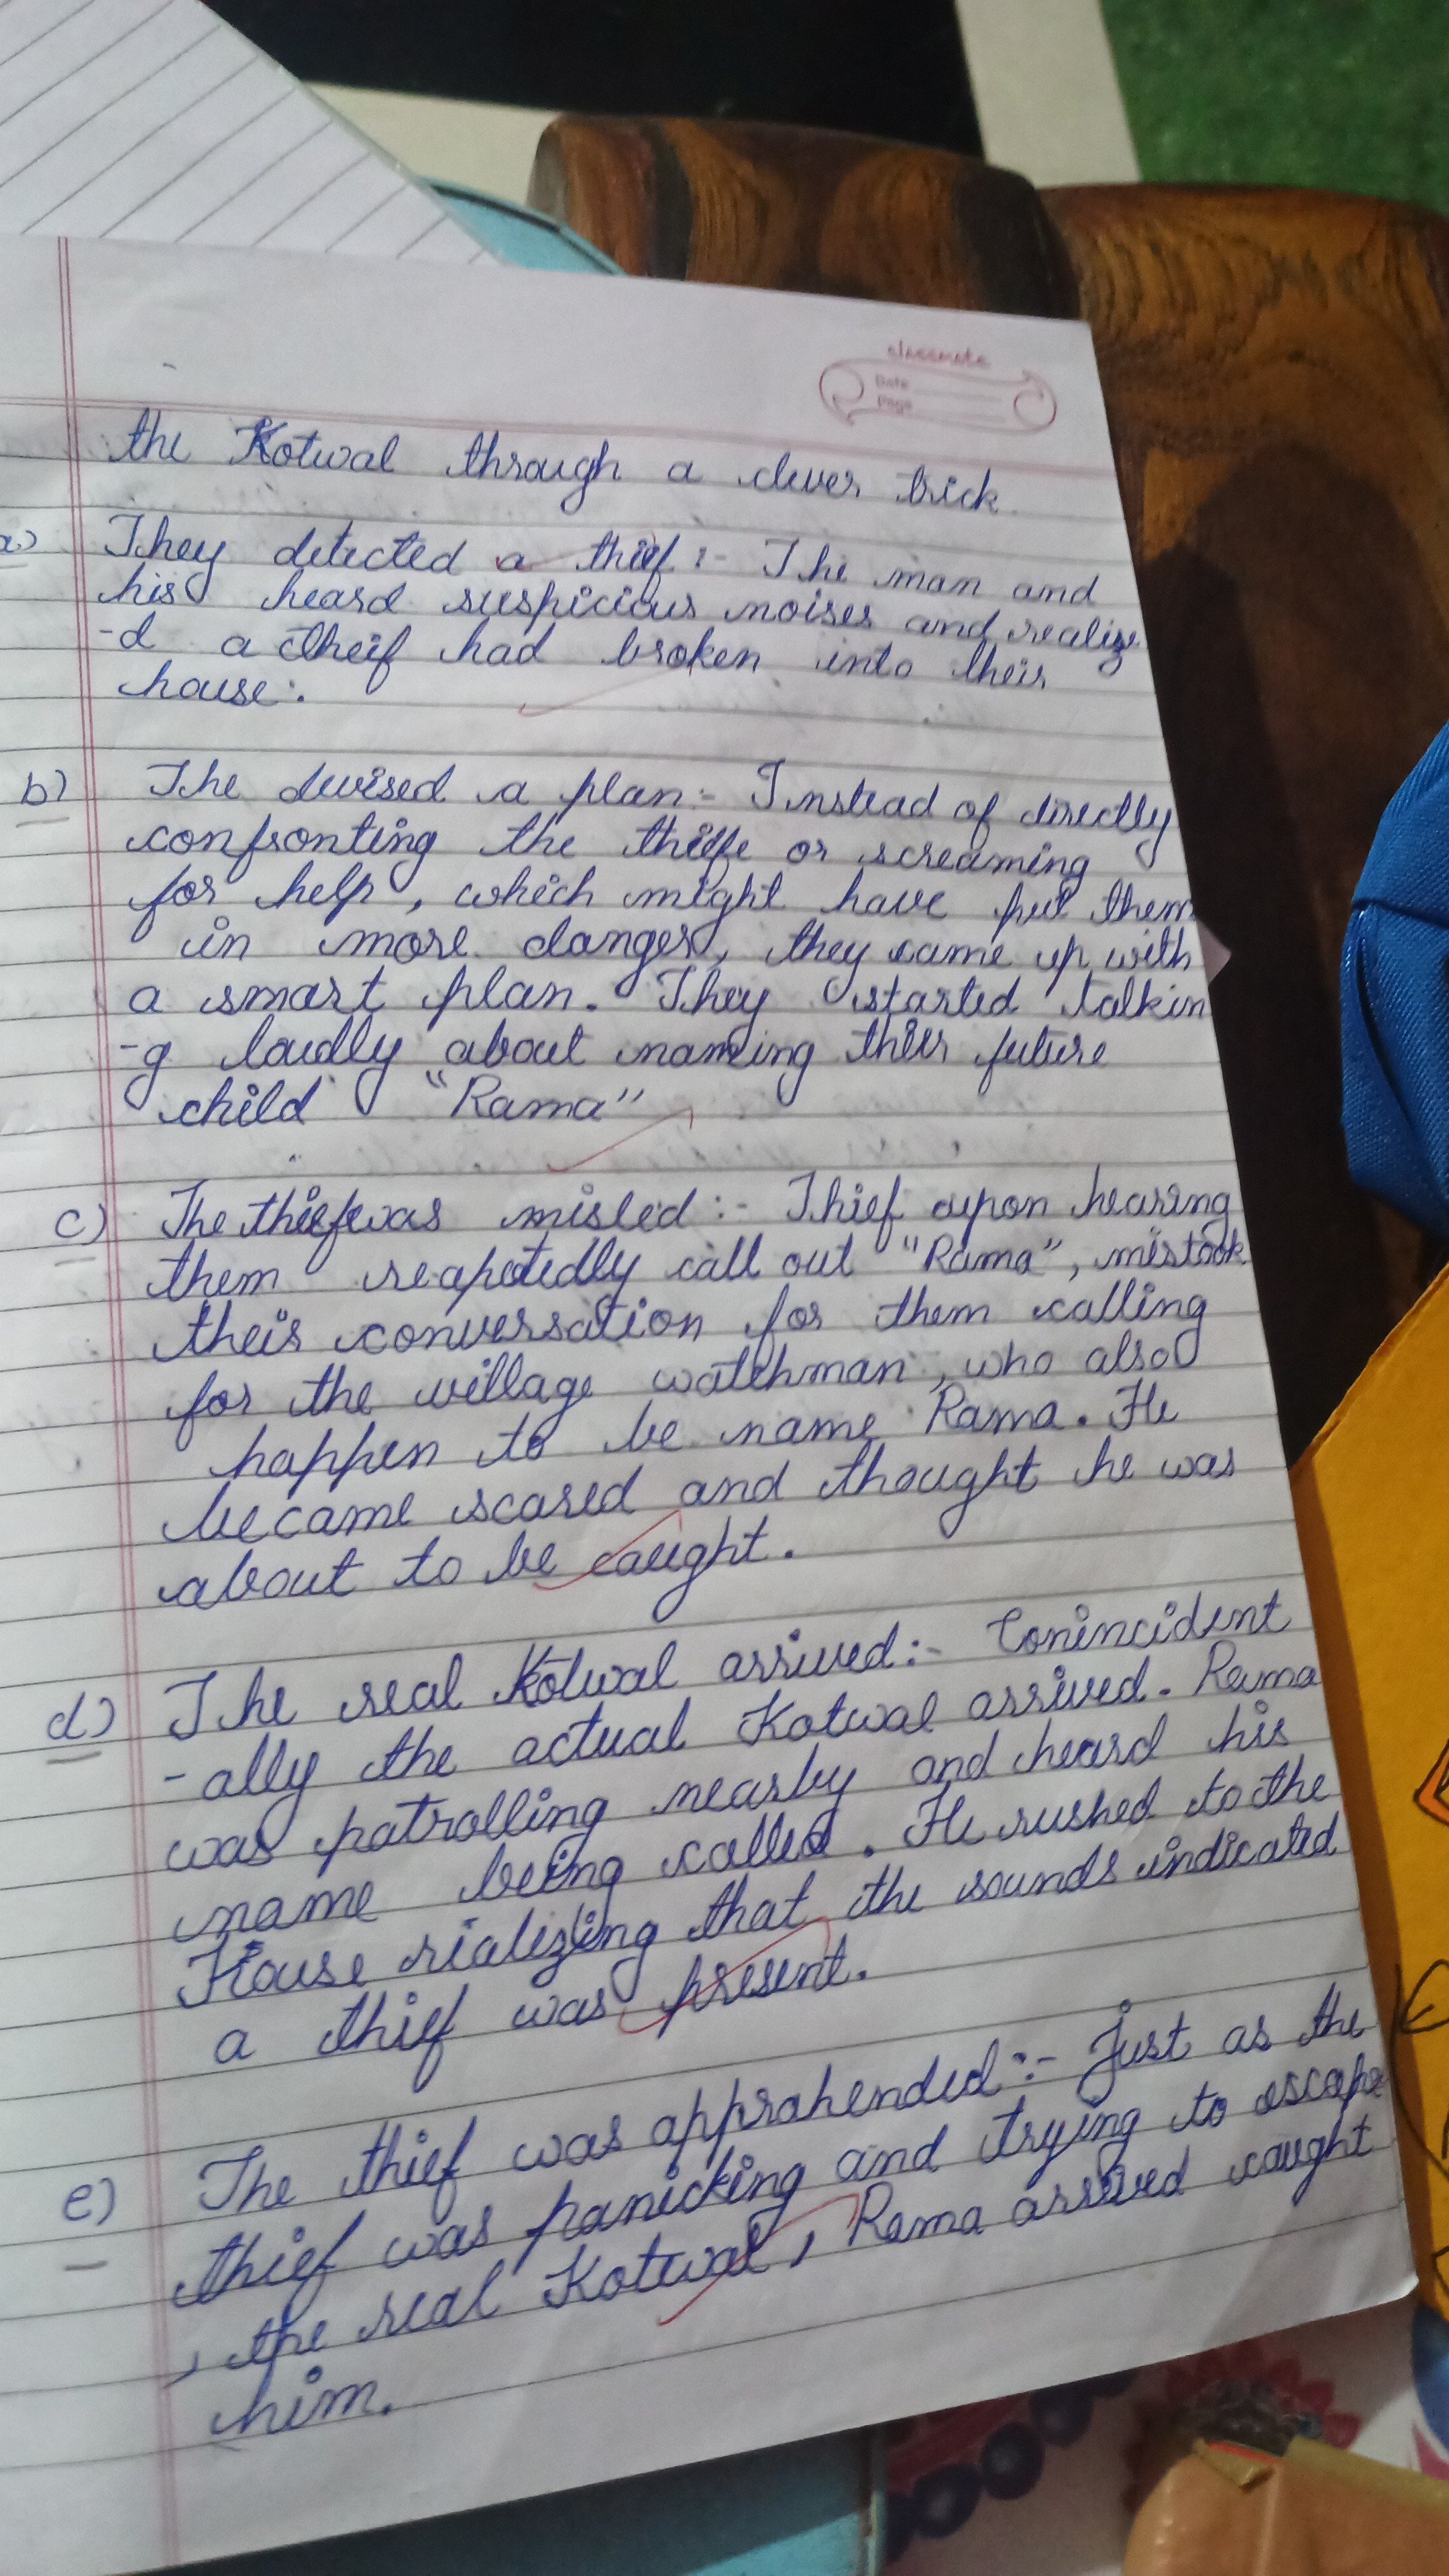 classmate
Date
Page
the Kotwal through a clever trick
a) They detected a thief :- The man and
his heard suspicious noises and realize
-d a theif had broken into their
house.
b) The devised a plan:- Instead of directly
confronting the thiefe or screaming
for help, which might have put them
in more danger, they came up with
a smart plan. They started talkin
-g loudly about naming their future
child "Rama"
c) The thief was misled :- Thief upon hearing
them reapetedly call out "Rama", mistook
their conversation for them calling
for the village watchman, who also
happen to be name Rama. He
became scared and thought he was
about to be caught.
d) The real Kotwal arrived:- Conincident
-ally the actual Kotwal arrived. Rama
was patrolling nearby and heard his
name being called. He rushed to the
House rializing that the sounds indicated
a thief was present.
e) The thief was apprahended:- Just as the
thief was panicking and trying to escape
, the real Kotwal, Rama arrived caught
him.